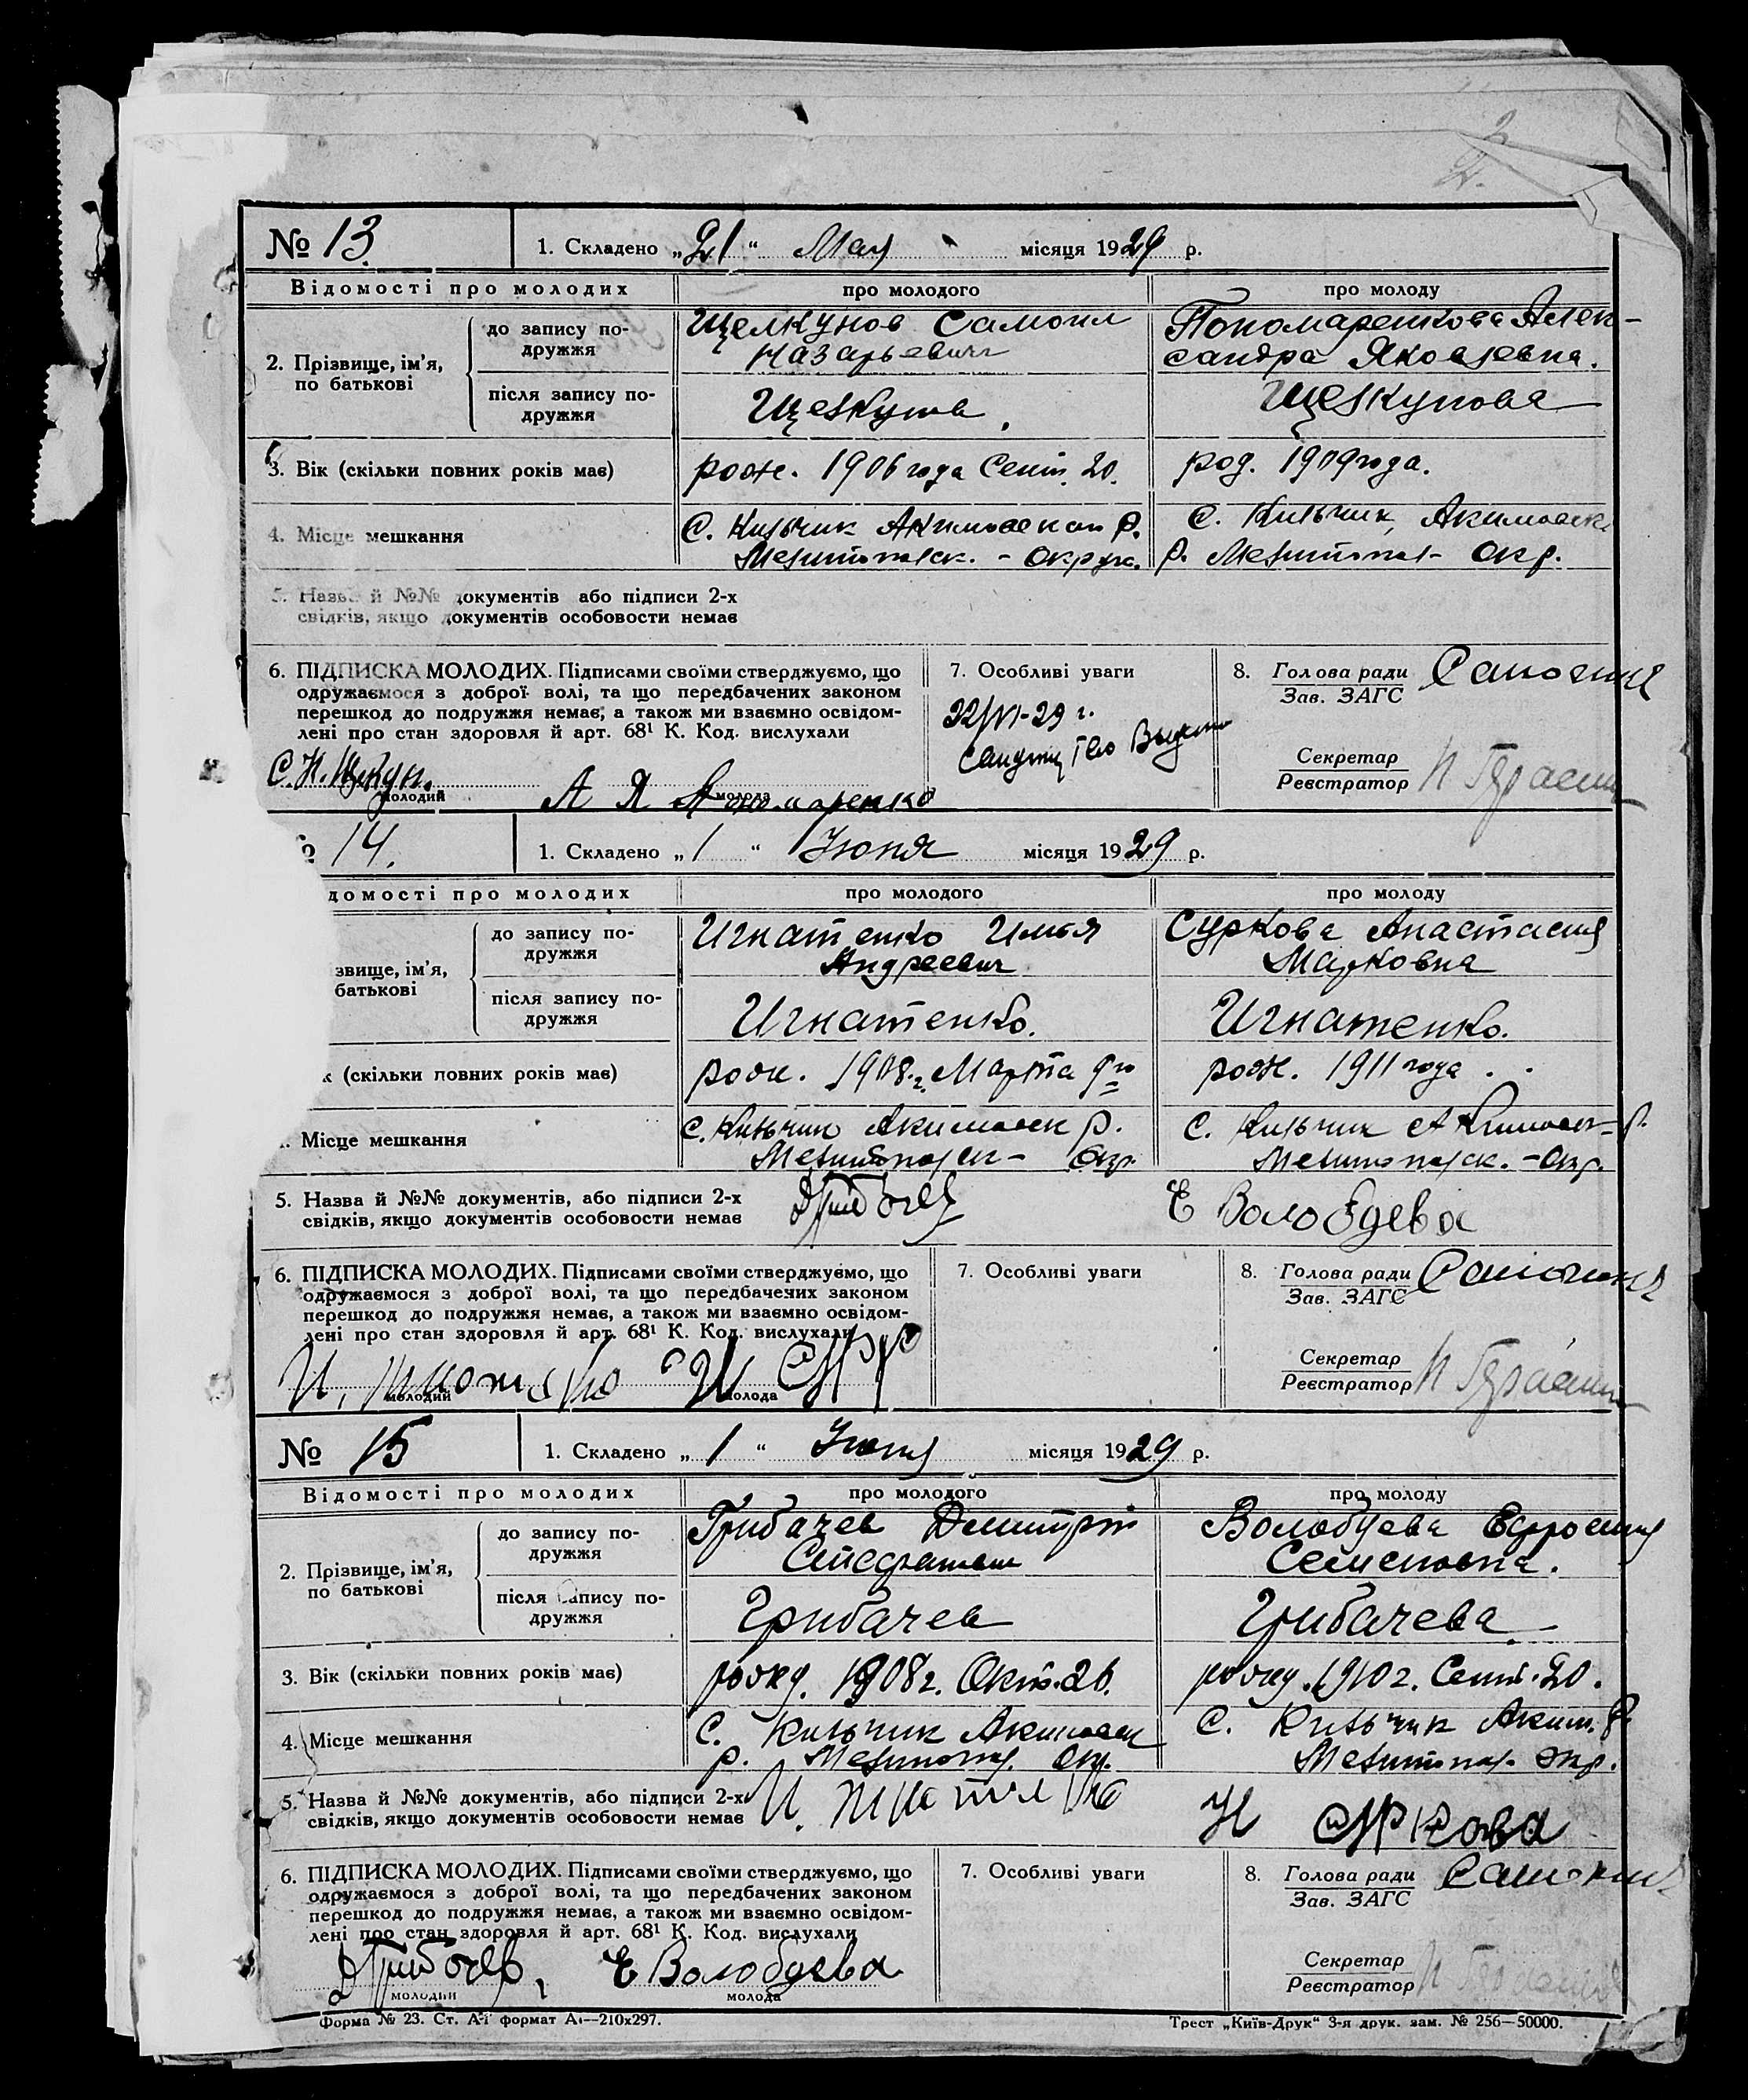 № 13. 1. Складено „21“ Мая місяця 1929 р.
Відомості про молодих про молодого про молоду
2. Прізвище, ім’я, по батькові
до запису по-
дружжя
Щелкунов Самоил
Назарьевич
Пономаренкова Алек-
сандра Яковлевна.
після запису по-
дружжя
Щелкунов
Щелкунова
3. Вік (скільки повних років має) рож. 1906 года Сент. 20. род. 1909 года.
4. Місце мешкання
С. Кильчик Акимовскаи р.
Мелитопольск. - окруж.
С. Кильчик, Акимовск
р. Мелитопол- окр.
5. Назва й №№ документів або підписи 2-х
свідків, якщо документів особовости немає
6. ПІДПИСКА МОЛОДИХ. Підписами своїми стверджуємо, що
одружаємося з доброї волі, та що передбачених законом
перешкод до подружжя немає, а також ми взаємно освідом-
лені про стан здоровля й арт. 68¹ К. Код. вислухали
молодий
А Я
молода
7. Особливі уваги
22/VI-29 г.
8. Голова ради
Зав. ЗАГС
Секретар
Реєстратор
14. 1. Складено „1“ Июня місяця 1929 р.
домості про молодих про молодого про молоду
звище, ім’я,
батькові
до запису по-
дружжя
Игнатенко Илья
Андреевич
Суркова Анастасия
Марковна
після запису по-
дружжя
Игнатенко.
Игнатенко.
к (скільки повних років має) рож. 1908 г. Марта 9го рож. 1911 года.
Місце мешкання
с. Кильчик Акимовск р.
Мелитопольск- Окр.
с. Кильчик Акимовск- р.
Мелитопольск. - Окр.
5. Назва й №№ документів, або підписи 2-х
свідків, якщо документів особовости немає
ДГрибачев
Е Волобуева
6. ПІДПИСКА МОЛОДИХ. Підписами своїми стверджуємо, що
одружаємося з доброї волі, та що передбачених законом
перешкод до подружжя немає, а також ми взаємно освідом-
лені про стан здоровля й арт. 68¹ К. Код. вислухали
молодий
молода
7. Особливі уваги
8. Голова ради
Зав. ЗАГС
Секретар
Реєстратор
№ 15 1. Складено „1“ Июня місяця 1929 р.
Відомості про молодих про молодого про молоду
2. Прізвище, ім’я,
по батькові
до запису по-
дружжя
Грибачев Дмитрий
Стефанович
Волобуева Ефросиния
Семеновна.
після запису по-
дружжя
Грибачев
Грибачева
3. Вік (скільки повних років має) рожд. 1908 г. Окт. 26. рожд. 1910 г. Сент. 20.
4. Місце мешкання
С. Кильчик Акимовск
р. Мелитопол. Окр.
С. Кильчик Аким. р.
Мелитопол. окр.
5. Назва й №№ документів, або підписи 2-х
свідків, якщо документів особовости немає
Н Суркова
6. ПІДПИСКА МОЛОДИХ. Підписами своїми стверджуємо, що
одружаємося з доброї волі, та що передбачених законом
перешкод до подружжя немає, а також ми взаємно освідом-
лені про стан здоровля й арт. 68¹ К. Код. вислухали
ДГрибачев,
молодий
Е Волобуева
молода
7. Особливі уваги
8. Голова ради
Зав. ЗАГС
Секретар
Реєстратор
Форма № 23. Ст. А-1 формат А4—210x297.
Трест „Київ-Друк“ 3-я друк. зам. № 256—50000.